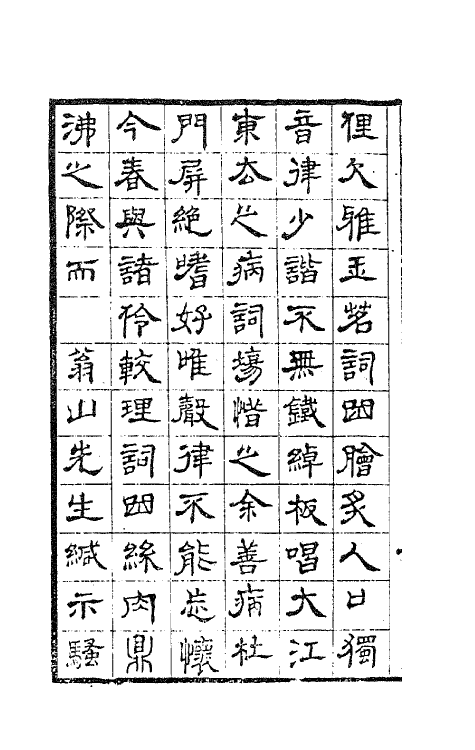 俚欠雅玉茗詞四膾炙人口獨
音律少諧不無鐵綽板唱大江
東去之病詞塲惜之余善病杜
門屏絶嗜好唯聲律不能忘懷
今春與諸伶較理詞四絲肉鼎
沸之際而 翁山先生緘示騷